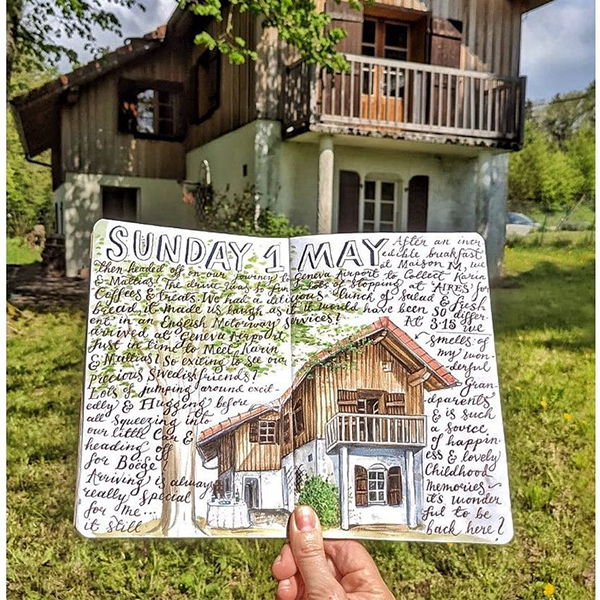 SUNDAY 1 MAY
After an incr
edible breakfast
at Maison M, we
then headed off on our journey to Geneva Airport to Collect Karin
& Mattias. The drive was so fun & Lots of stopping at 'AIRES' for
Coffees & treats. We had a delicious lunch of salad & fresh
bread it made us laugh as it would have been SO differ-
ent in an English Motorway Services! At 3.15 we
arrived at Geneva Airport
Just in time to Meet Karin
& Mattias! So exiting to see our
precious Swedish friends!
Lots of jumping around excit-
edly & Hugging before
all squeezing into
our little Car &
heading off
for Boëge!
Arriving is always
really special
for me...
it still
smells of
my won-
derful
Gran-
dparents
& is such
a source
of happin-
ess & lovely
Childhood
Memories -
it's wonder
ful to be
back here!